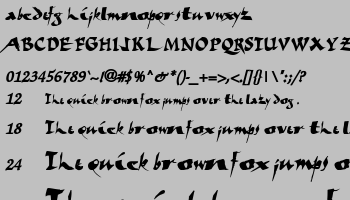 abcdefg hijklmnopqrstuvwxyz
ABCDEFGHIJKLMNOPQRSTUVWXYZ
0123456789`~!@#$%^&*()-_+=>,<.[]{}|\'":;/?
12 The quick brown fox jumps over the lazy dog.
18 The quick brown fox jumps over the l
24 The quick brown fox jumps o